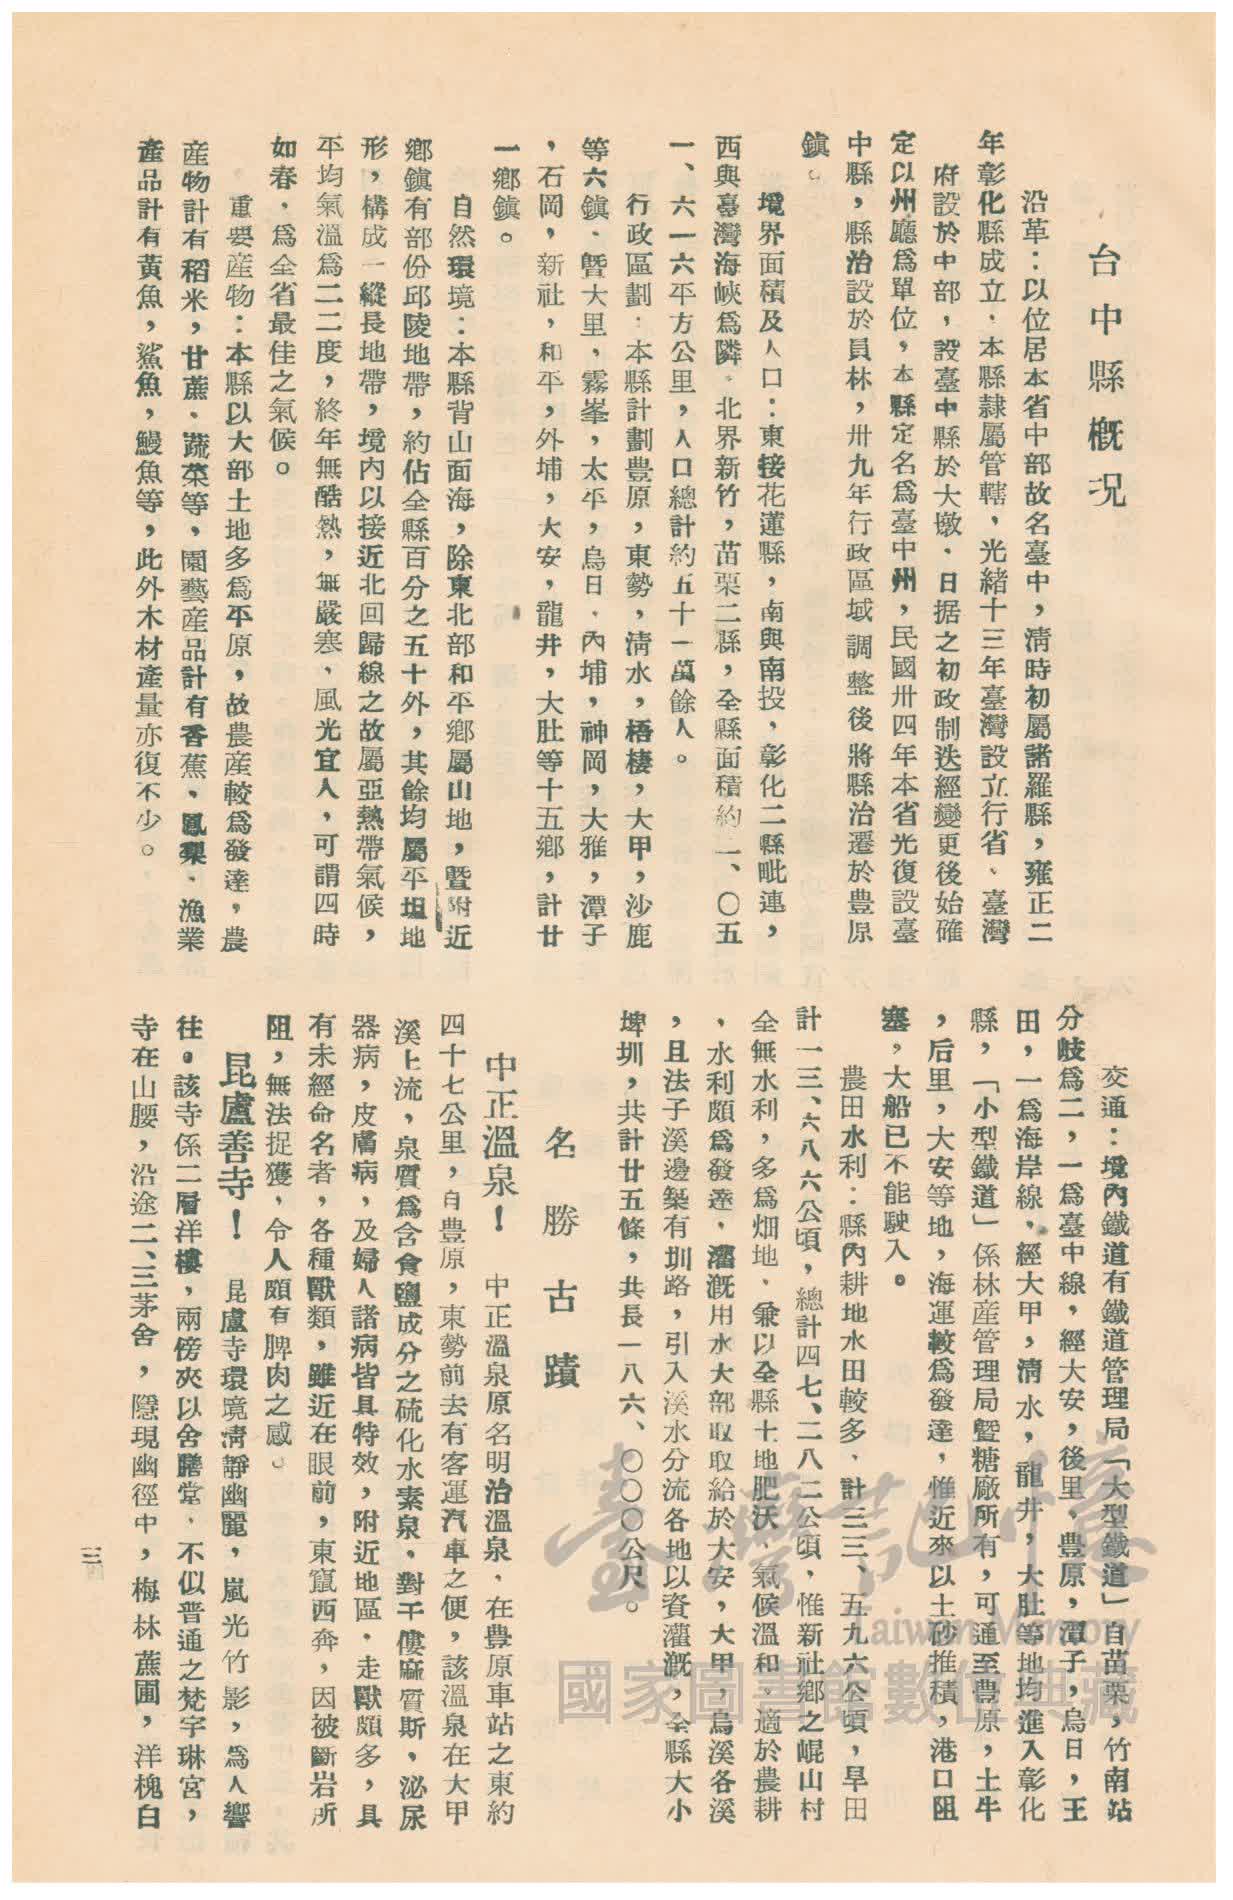 台中縣概況
沿革：以位居本省中部故名臺中，淸時初屬諸羅縣，雍正二
年彰化縣成立．本縣隷屬管轄，光緒十三年臺灣設立行省、臺灣
府設於中部，設臺中縣於大墩．日据之初政制迭經變更後始確
定以州廳爲單位，本縣定名爲臺中州，民國卅四年本省光復設臺
中縣，縣治設於員林，卅九年行政區域調整後將縣治遷於豊原
鎮。
境界面積及人口：東接花蓮縣，南與南投，彰化二縣毗連，
西與臺灣海峽爲隣．北界新竹，苗栗二縣，全縣面積約二、〇五
一、六一六平方公里，人口總計約五十一萬餘人。
行政區劃：本縣計劃豊原，東勢，淸水，梧棲，大甲，沙鹿
等六鎮．暨大里，霧峯，太平，烏日．內埔，神岡，大雅，潭子
，石岡，新社，和平，外埔，大安，龍井，大肚等十五鄉，計廿
一鄉鎮。
自然環境：本縣背山面海，除東北部和平鄉屬山地，暨附近
鄉鎮有部份邱陵地帶，約佔全縣百分之五十外，其餘均屬平坦地
形，構成一縱長地帶，境內以接近北回歸線之故屬亞熱帶氣候，
平均氣溫爲二二度，終年無酷熱，無嚴塞．風光宜人，可謂四時
如春．爲全省最佳之氣候。
重要産物：本縣以大部土地多爲平原，故農産較爲發達，農
産物計有稻米，甘蔗、蔬菜等，園藝産品計有香蕉、鳳梨．漁業
產品計有黃魚，鯊魚，鰻魚等，此外木材產量亦復不少。
交通：境內鐵道有鐵道管理局「大型鐵道」自苗栗，竹南站
分岐爲二，一爲臺中線，經大安，後里，豊原，潭子，烏日，王
田，一爲海岸線，經大甲，淸水，龍井，大肚等地均進入彰化
縣，「小型鐵道」係林産管理局暨糖廠所有，可通至豊原，土牛
，后里，大安等地，海運較爲發達，惟近來以土砂推積，港口阻
塞，大船已不能駛入。
農田水利：縣內耕地水田較多．計三三、五九六公頃，旱田
計一三、六八六公頃，總計四七、二八二公頃，惟新社鄉之崐山村
全無水利，多爲畑地．兼以全縣土地肥沃．氣候溫和．適於農耕
．水利頗爲發達，灌漑用水大部取取給於大安，大甲，烏溪各溪
，且法子溪邊築有圳路，引入溪水分流各地以資灌漑，全縣大小
埤圳，共計廿五條，共長一八六、〇〇〇公尺。
名勝古蹟
中正溫泉！　中正溫泉原名明治溫泉．在豊原車站之東約
四十七公里，自豊原，東勢前去有客運汽車之便，該溫泉在大甲
溪上流，泉質爲含食鹽成分之硫化水素泉．對于僂麻質斯，泌尿
器病，皮膚病，及婦人諸病皆具特效，附近地區．走獸頗多，具
有未經命名者，各種獸類，雖近在眼前，東竄西奔，因被斷岩所
阻，無法捉獲，令人頗有脾肉之感。
昆盧善寺！　昆盧寺環境淸靜幽麗，嵐光竹影，爲人響
往。該寺係二層洋樓，兩傍夾以舍膳堂．不似普通之梵宇琳宮，
寺在山腰，沿途二、三茅舍，隱現幽徑中，梅林蔗圃，洋槐白
三四
臺灣記憶
Taiwan Memory
國家圖書館數位典藏